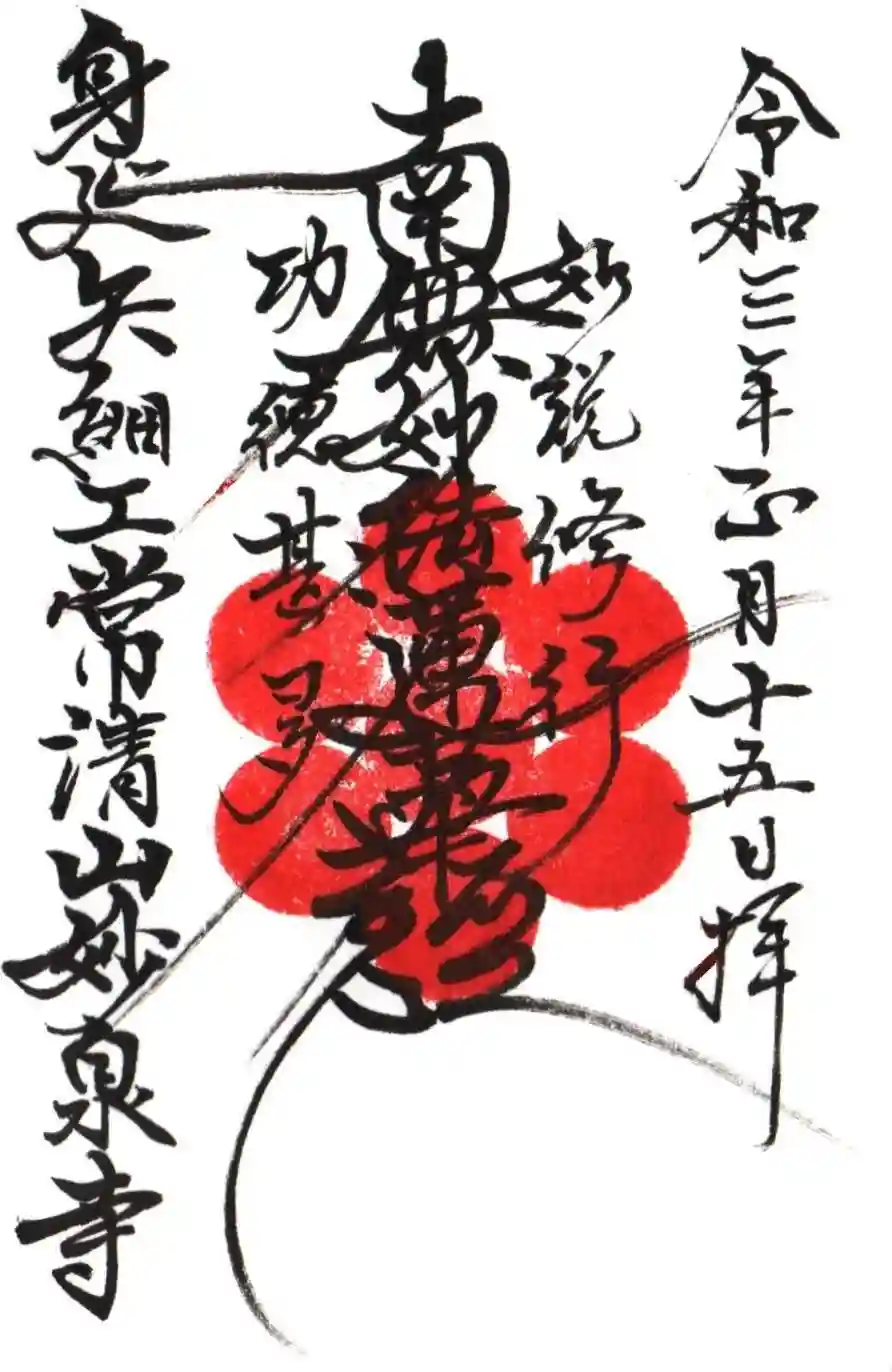 令和三年正月十五日拝
如説修行
南無妙法蓮華経
功徳甚多
身延矢細工常清山妙泉寺